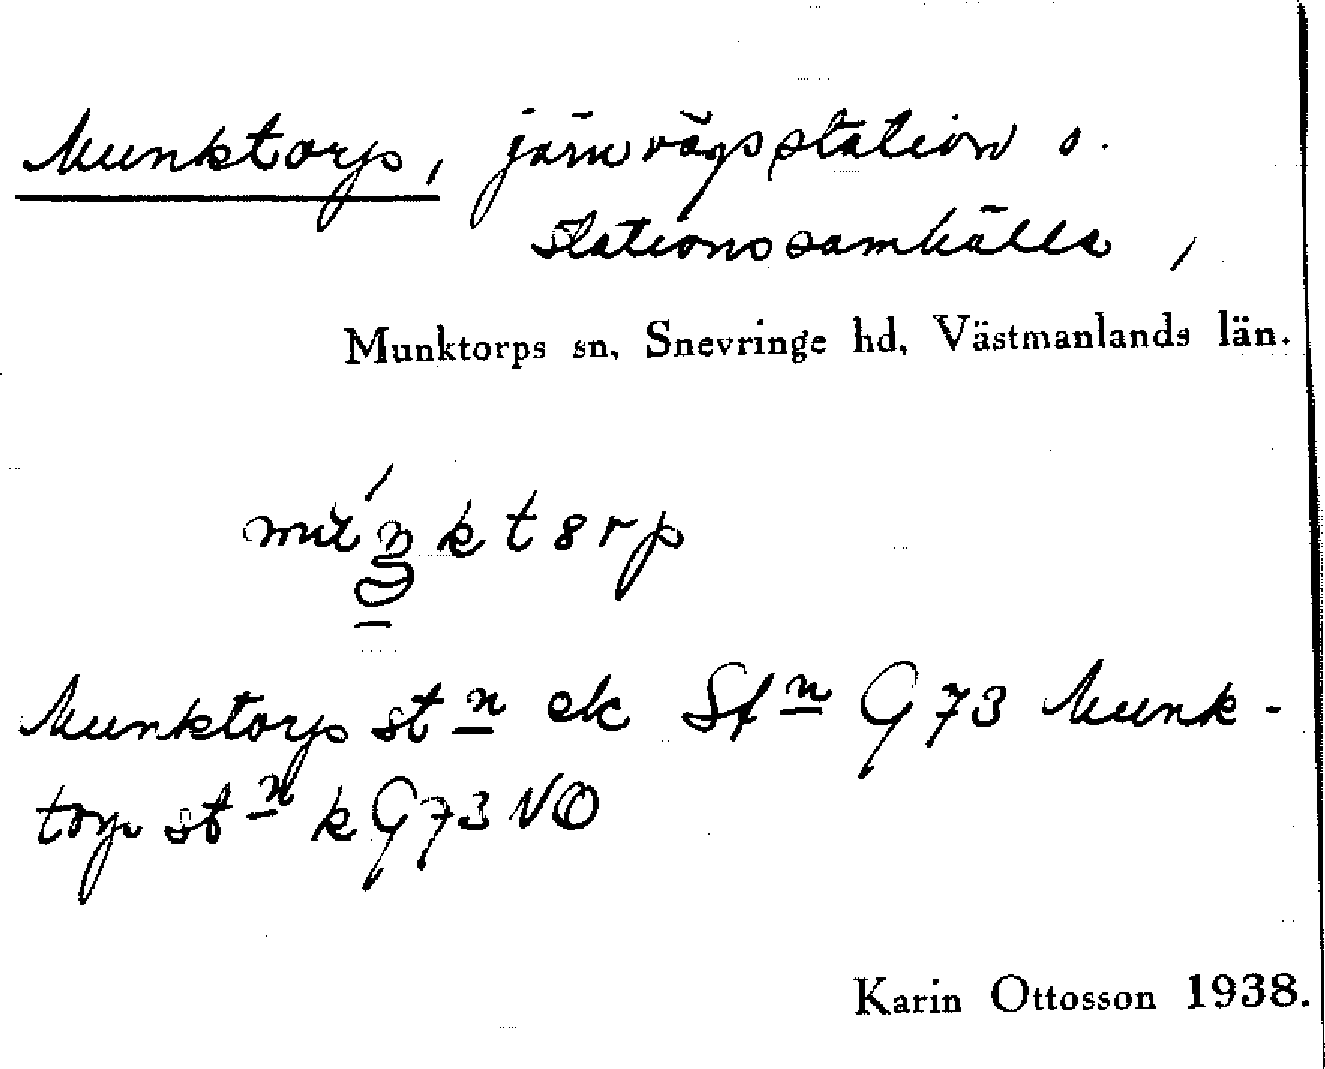 Munktorp, järnvägsstation o.
stationssamhälle,
Munktorps sn, Snevringe hd, Västmanlands län.
Munktorps stn ek Stn G 73 Munk-
torp stn k G 73 NO
Karin Ottosson 1938.